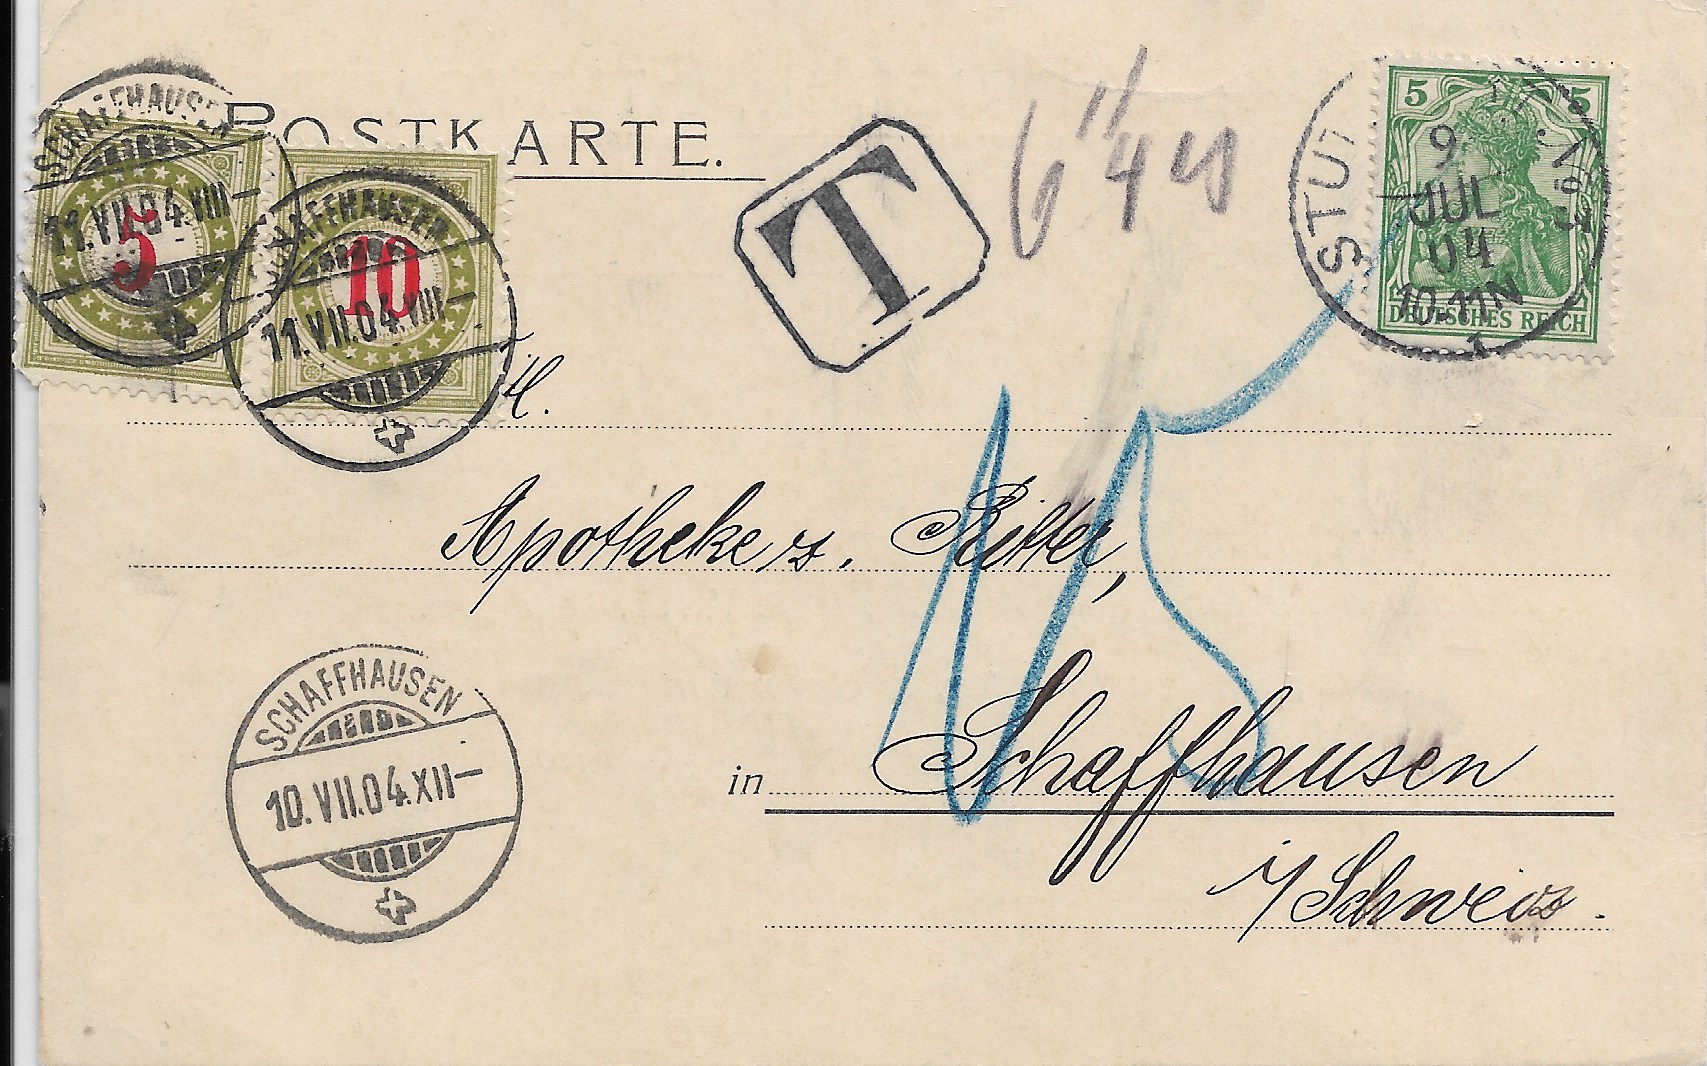 POSTKARTE.
T
6 1/4
5 5
DEUTSCHES REICH
STUT
9
JUL
04
10-11N
1
SCHAFFHAUSEN
11.VII.04.VIII–
5
SCHAFFHAUSEN
11.VII.04.VIII–
10
15
Apotheke z. Ritter,
SCHAFFHAUSEN
10.VII.04.XII–
in Schaffhausen
i/Schweiz.